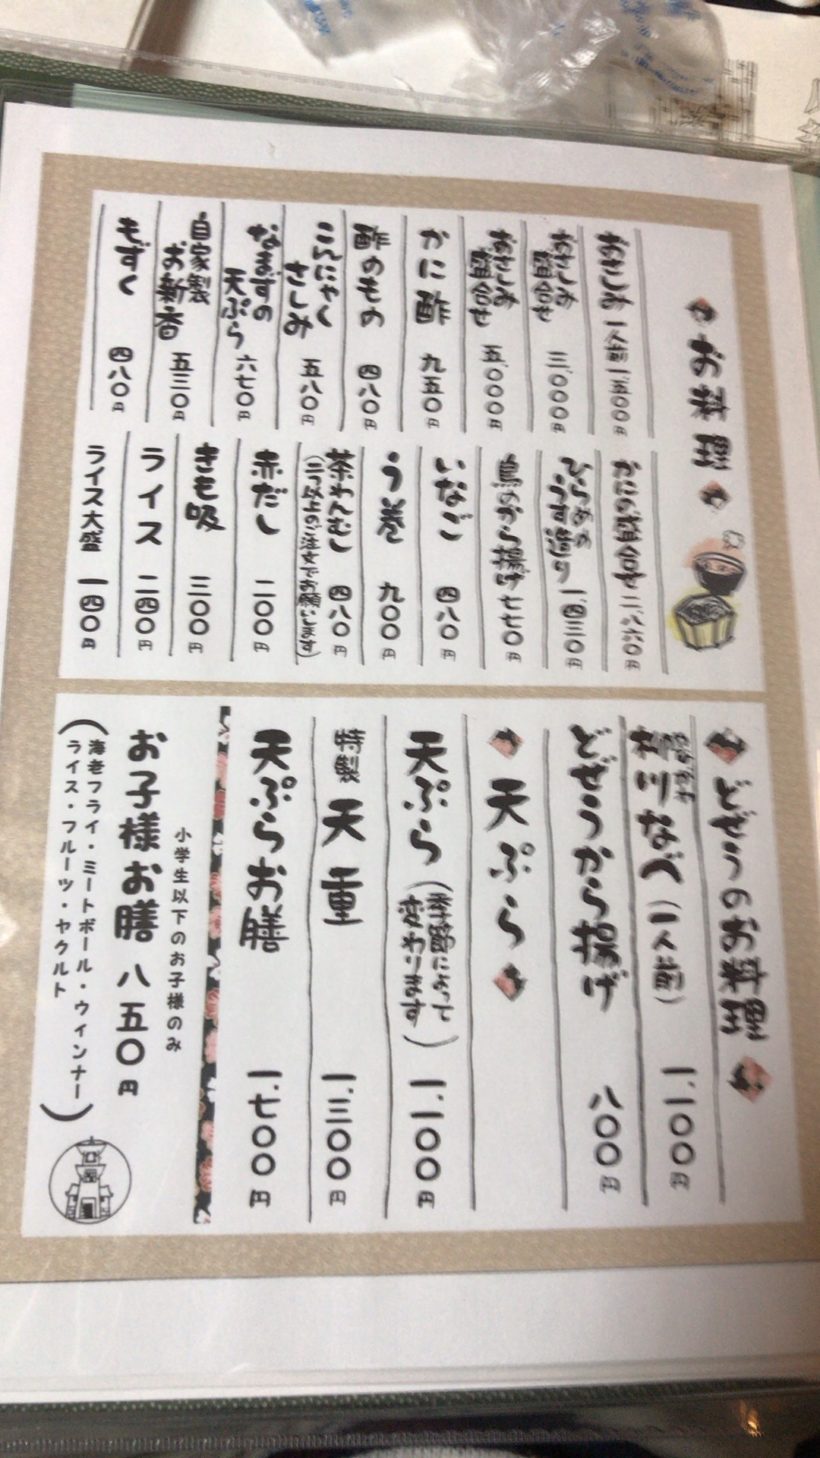 お料理
おさしみ 一人前 一、五〇〇円
おさしみ盛合せ 三、〇〇〇円
おさしみ盛合せ 五、〇〇〇円
かに酢 九五〇円
酢のもの 四八〇円
こんにゃくさしみ 五八〇円
なまずの天ぷら 六七〇円
自家製お新香 五三〇円
もずく 四八〇円
かにの盛合せ 二、八六〇円
ひらめのうす造り 一、四三〇円
鳥のから揚げ 七七〇円
いなご 四八〇円
う巻 九〇〇円
茶わんむし 四八〇円
(二つ以上のご注文でお願いします)
赤だし 二〇〇円
きも吸 三〇〇円
ライス 二四〇円
ライス大盛 一四〇円
どぜうのお料理
柳川なべ(一人前) 一、一〇〇円
どぜうから揚げ 八〇〇円
天ぷら
天ぷら(季節によって変わります) 一、一〇〇円
特製 天重 一、三〇〇円
天ぷらお膳 一、七〇〇円
小学生以下のお子様のみ
お子様お膳 八五〇円
(海老フライ・ミートボール・ウィンナー
ライス・フルーツ・ヤクルト)